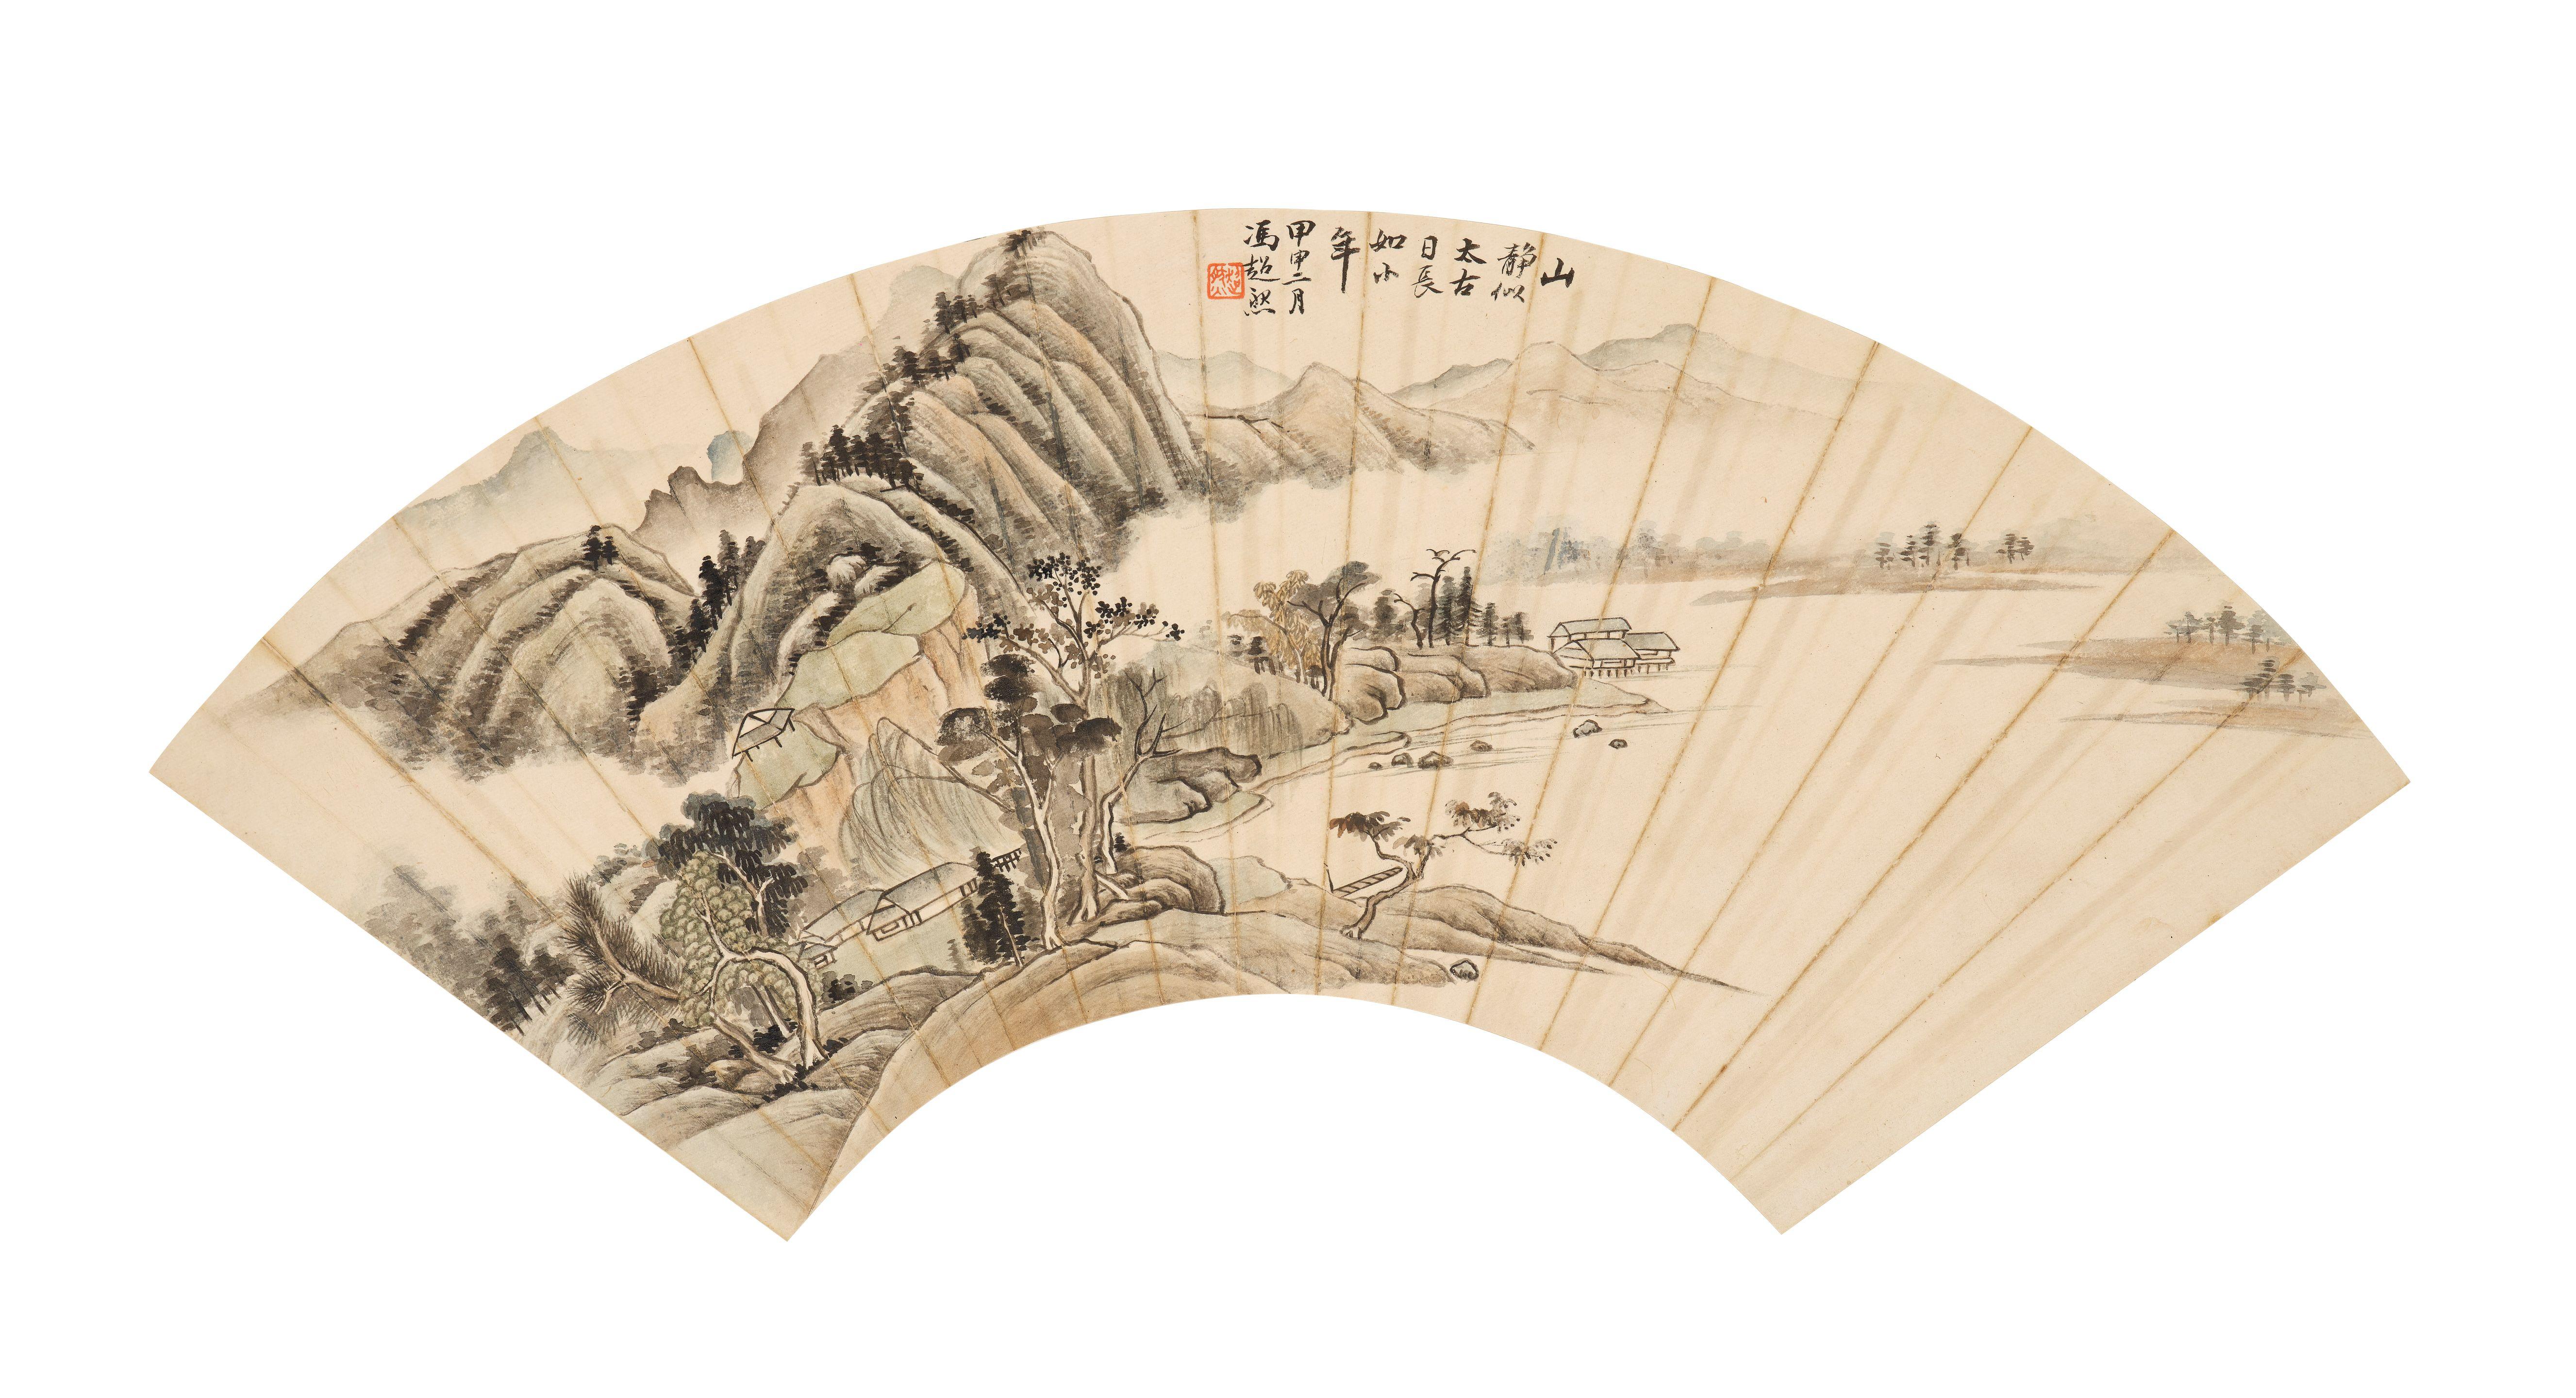 山
静似
太古
日長
如小
年
甲申二月
馮超然
超然